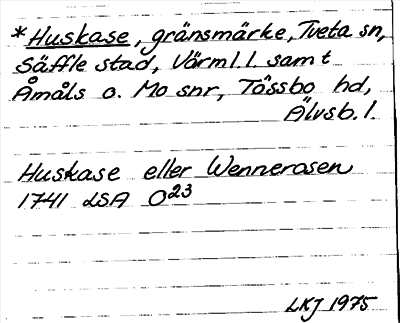 *Huskase, gränsmärke, Tveta sn,
Säffle stad, Värml. l. samt
Åmåls o. Mo snr, Tössbo hd,
Älvsb. l.
Huskase eller Wennerosen
1741 LSA O23
LKJ 1975